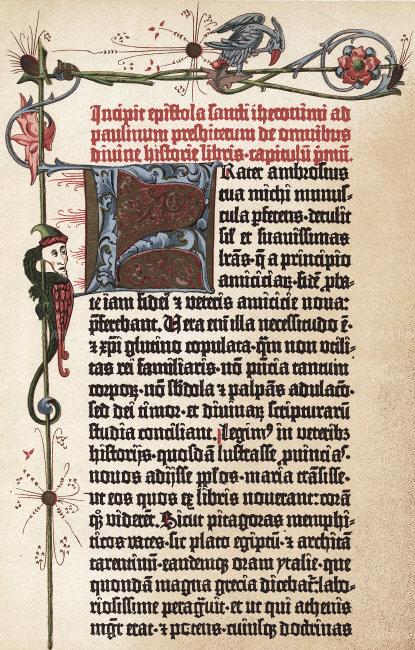 Incipit epistola sancti iheronimi ad
paulinum presbiterum de omnibus
divine historie libris · capitulū pmū.
FRater ambrosius
tua michi munus-
cula pferens · detulit
sil' et suauissimas
lrās · q̄ a principio
amiciciaꝝ · fidē pba-
te iam fidei ⁊ veteris amicicie noua:
pferebant. Vera eni illa necessitudo ē ·
⁊ xpi glutino copulata · qm non vtili-
tas rei familiaris · nō pncia tantum
corpoꝝ · nō sbdola ⁊ palpās adulacō ·
sed dei timor · et diuinaꝝ scripturarū
studia conciliant. Legimꝰ in veteribꝫ
historijs · quosdā lustrasse puīcias ·
nouos adijsse pplos · maria trāsisse ·
ut eos quos ex libris nouerant: corā
qꝫ viderēt. Sicut pitagoras memphi-
ticos vates · sic plato egiptū · ⁊ architā
tarentinū · eandemqꝫ oram ytalie · que
quondā magna grecia dicebat̄: labo-
riosissime peragͣuit · et ut qui athenis
mgr̄ erat · ⁊ potens · cuiusqꝫ doctrinas